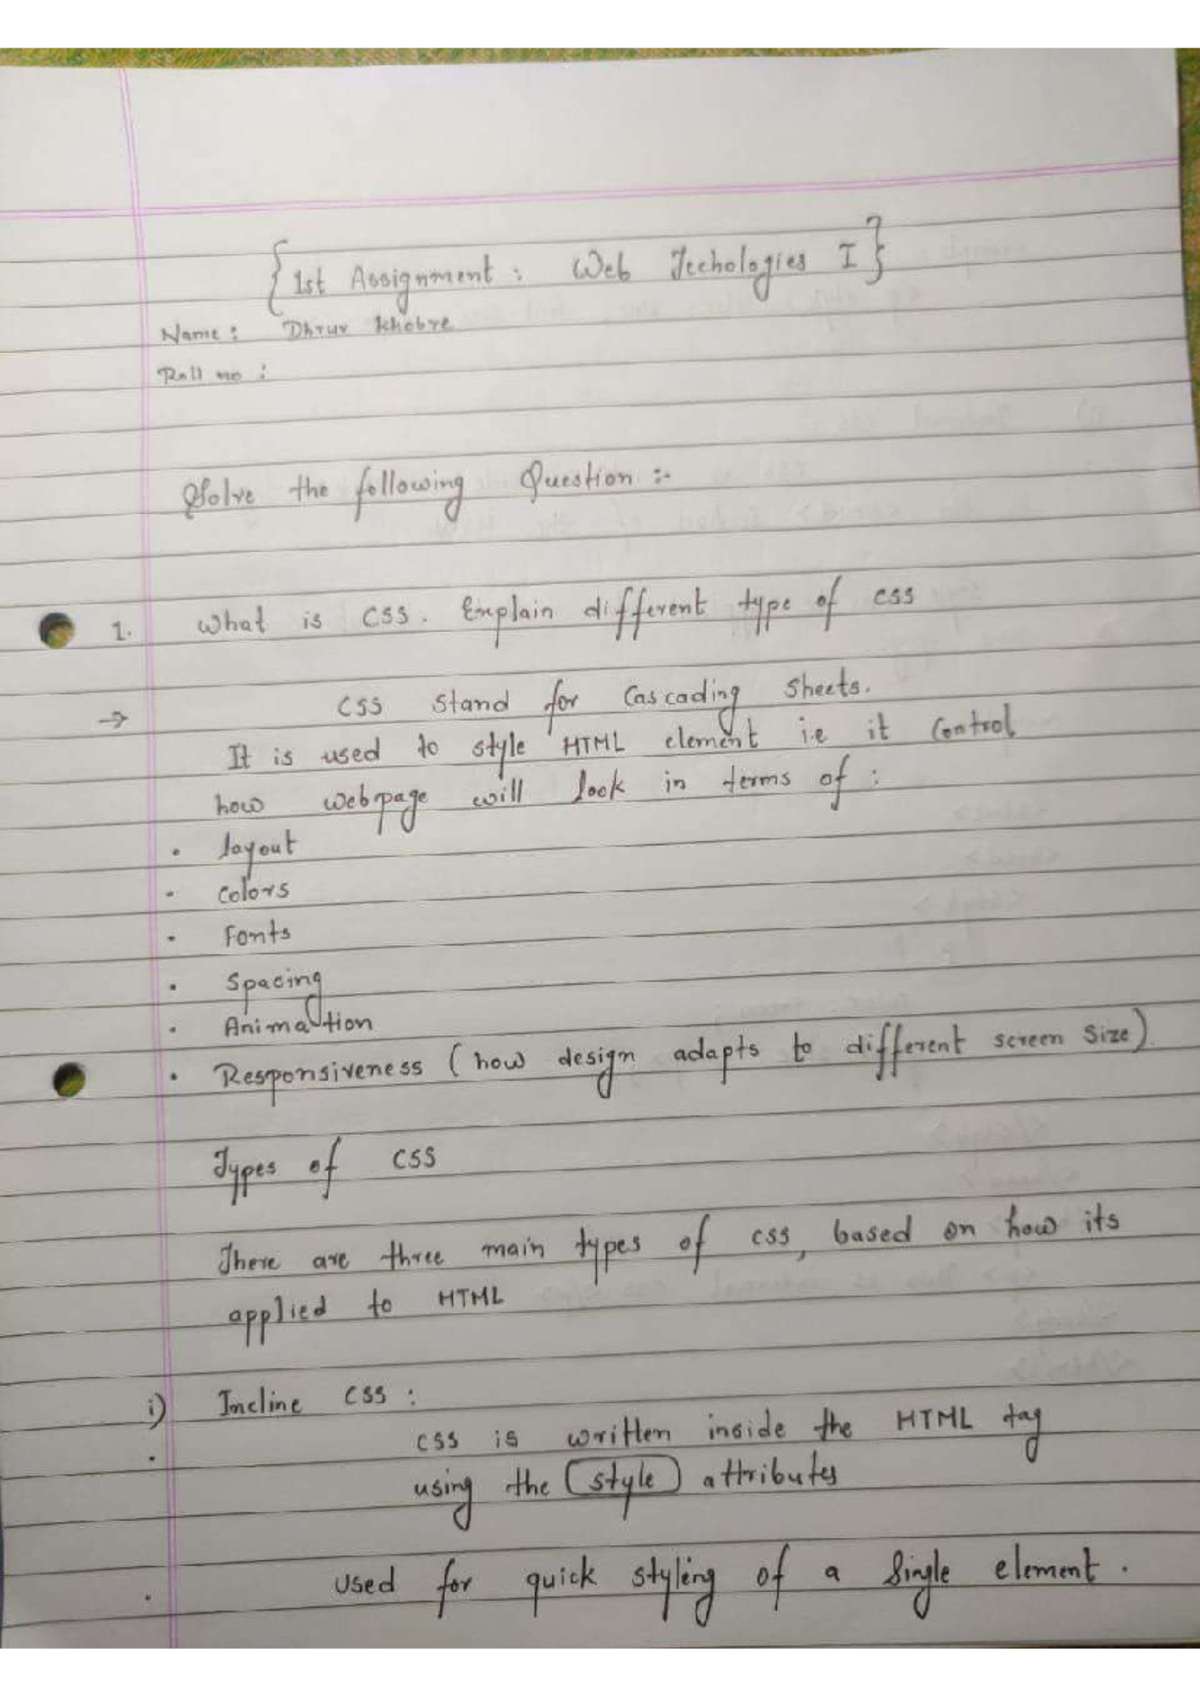 {1st Assignment : Web Techologies I}
Name : Dhruv Khobre
Roll no :
Solve the following Question :-
1. What is CSS. Explain different type of CSS
→ CSS stand for Cascading Sheets.
It is used to style HTML element i.e it Control
how webpage will look in terms of :
• layout
• Colors
• Fonts
• Spacing
• Animation
• Responsiveness (how design adapts to different screen size)
Types of CSS
There are three main types of CSS, based on how its
applied to HTML
i) Incline CSS :
• CSS is written inside the HTML tag
using the style attributes
• Used for quick styling of a Single element.